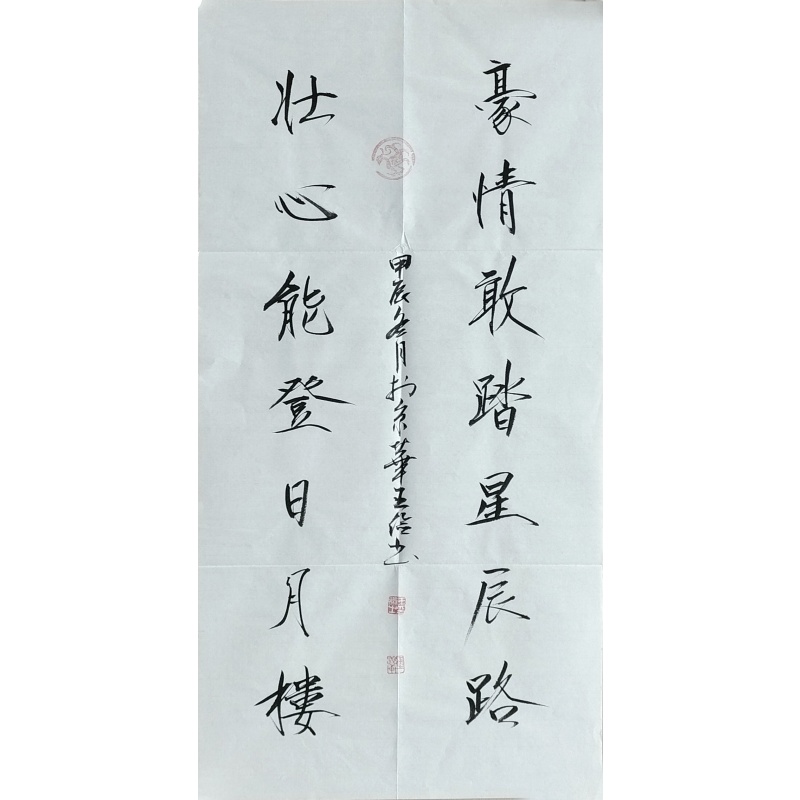 豪情敢踏星辰路
壮心能登日月樓
甲辰冬月於京華王培书